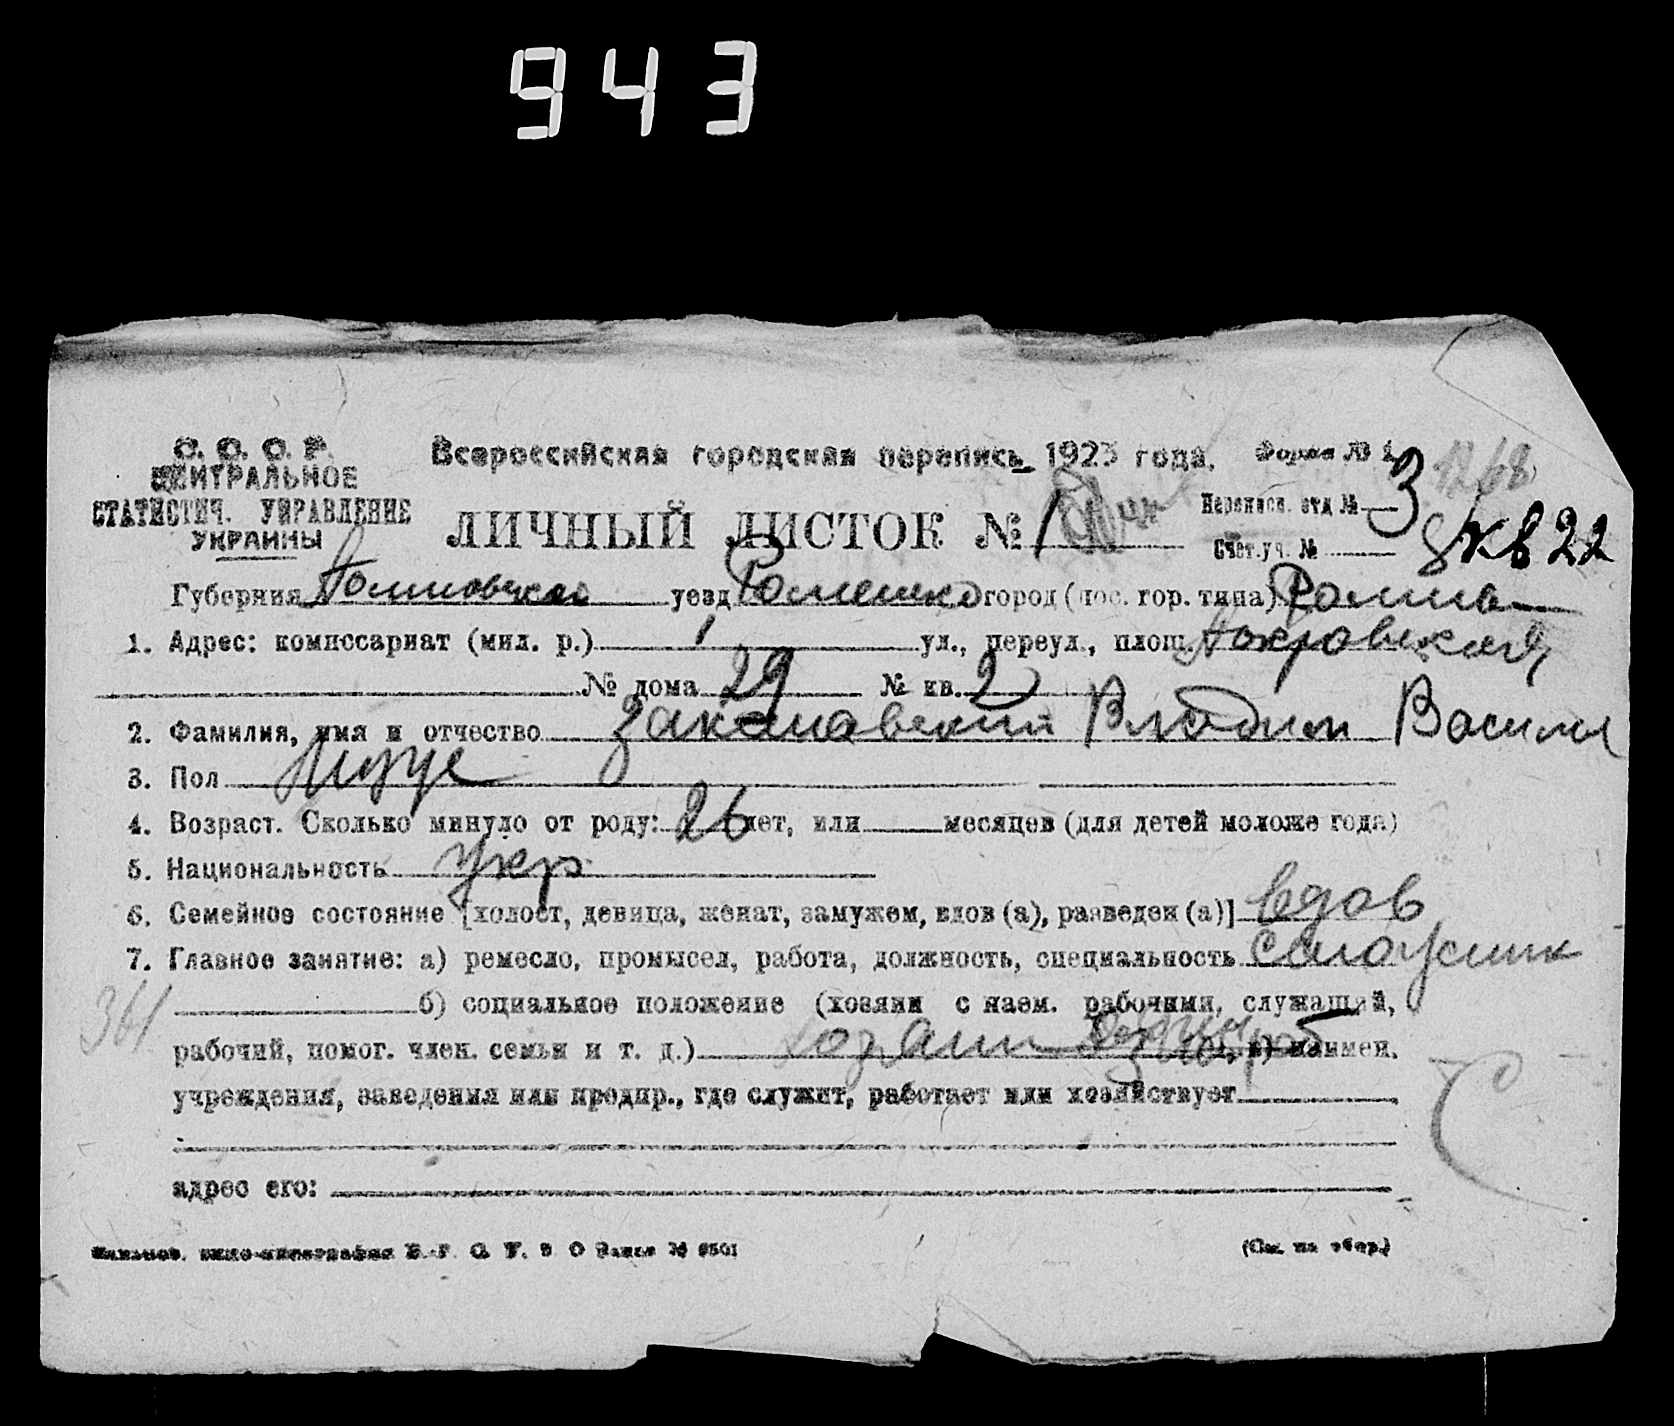 943
С. С. С. Р. Всероссийская городская перепись 1923 года. Форма № 1
ЦЕНТРАЛЬНОЕ
СТАТИСТИЧ. УПРАВЛЕНИЕ
УКРАИНЫ
ЛИЧНЫЙ ЛИСТОК № 1 Переписн. отд № 3
Счет. уч. № 8 кв 22
Губерния Полтовская уезд Роменско город (пос. гор. типа) Ромны
1. Адрес: комиссариат (мил. р.) 1 ул., переул., площ. Покровская
№ дома 29 № кв. 2
2. Фамилия, имя и отчество Владим Васил
3. Пол Муж
4. Возраст. Сколько минуло от роду: 26 лет, или месяцев (для детей моложе года)
5. Национальность Укр
6. Семейное состояние [холост, девица, женат, замужем, вдов (а), разведен (а)] вдов
7. Главное занятие: а) ремесло, промысел, работа, должность, специальность
361 б) социальное положение (хозяин с наем. рабочими, служащий,
рабочий, помог. член. семьи и т. д.) хозяин в) наимен.
учреждения, заведения или предпр., где служит, работает или хозяйствует
адрес его:
(См. на обор.)